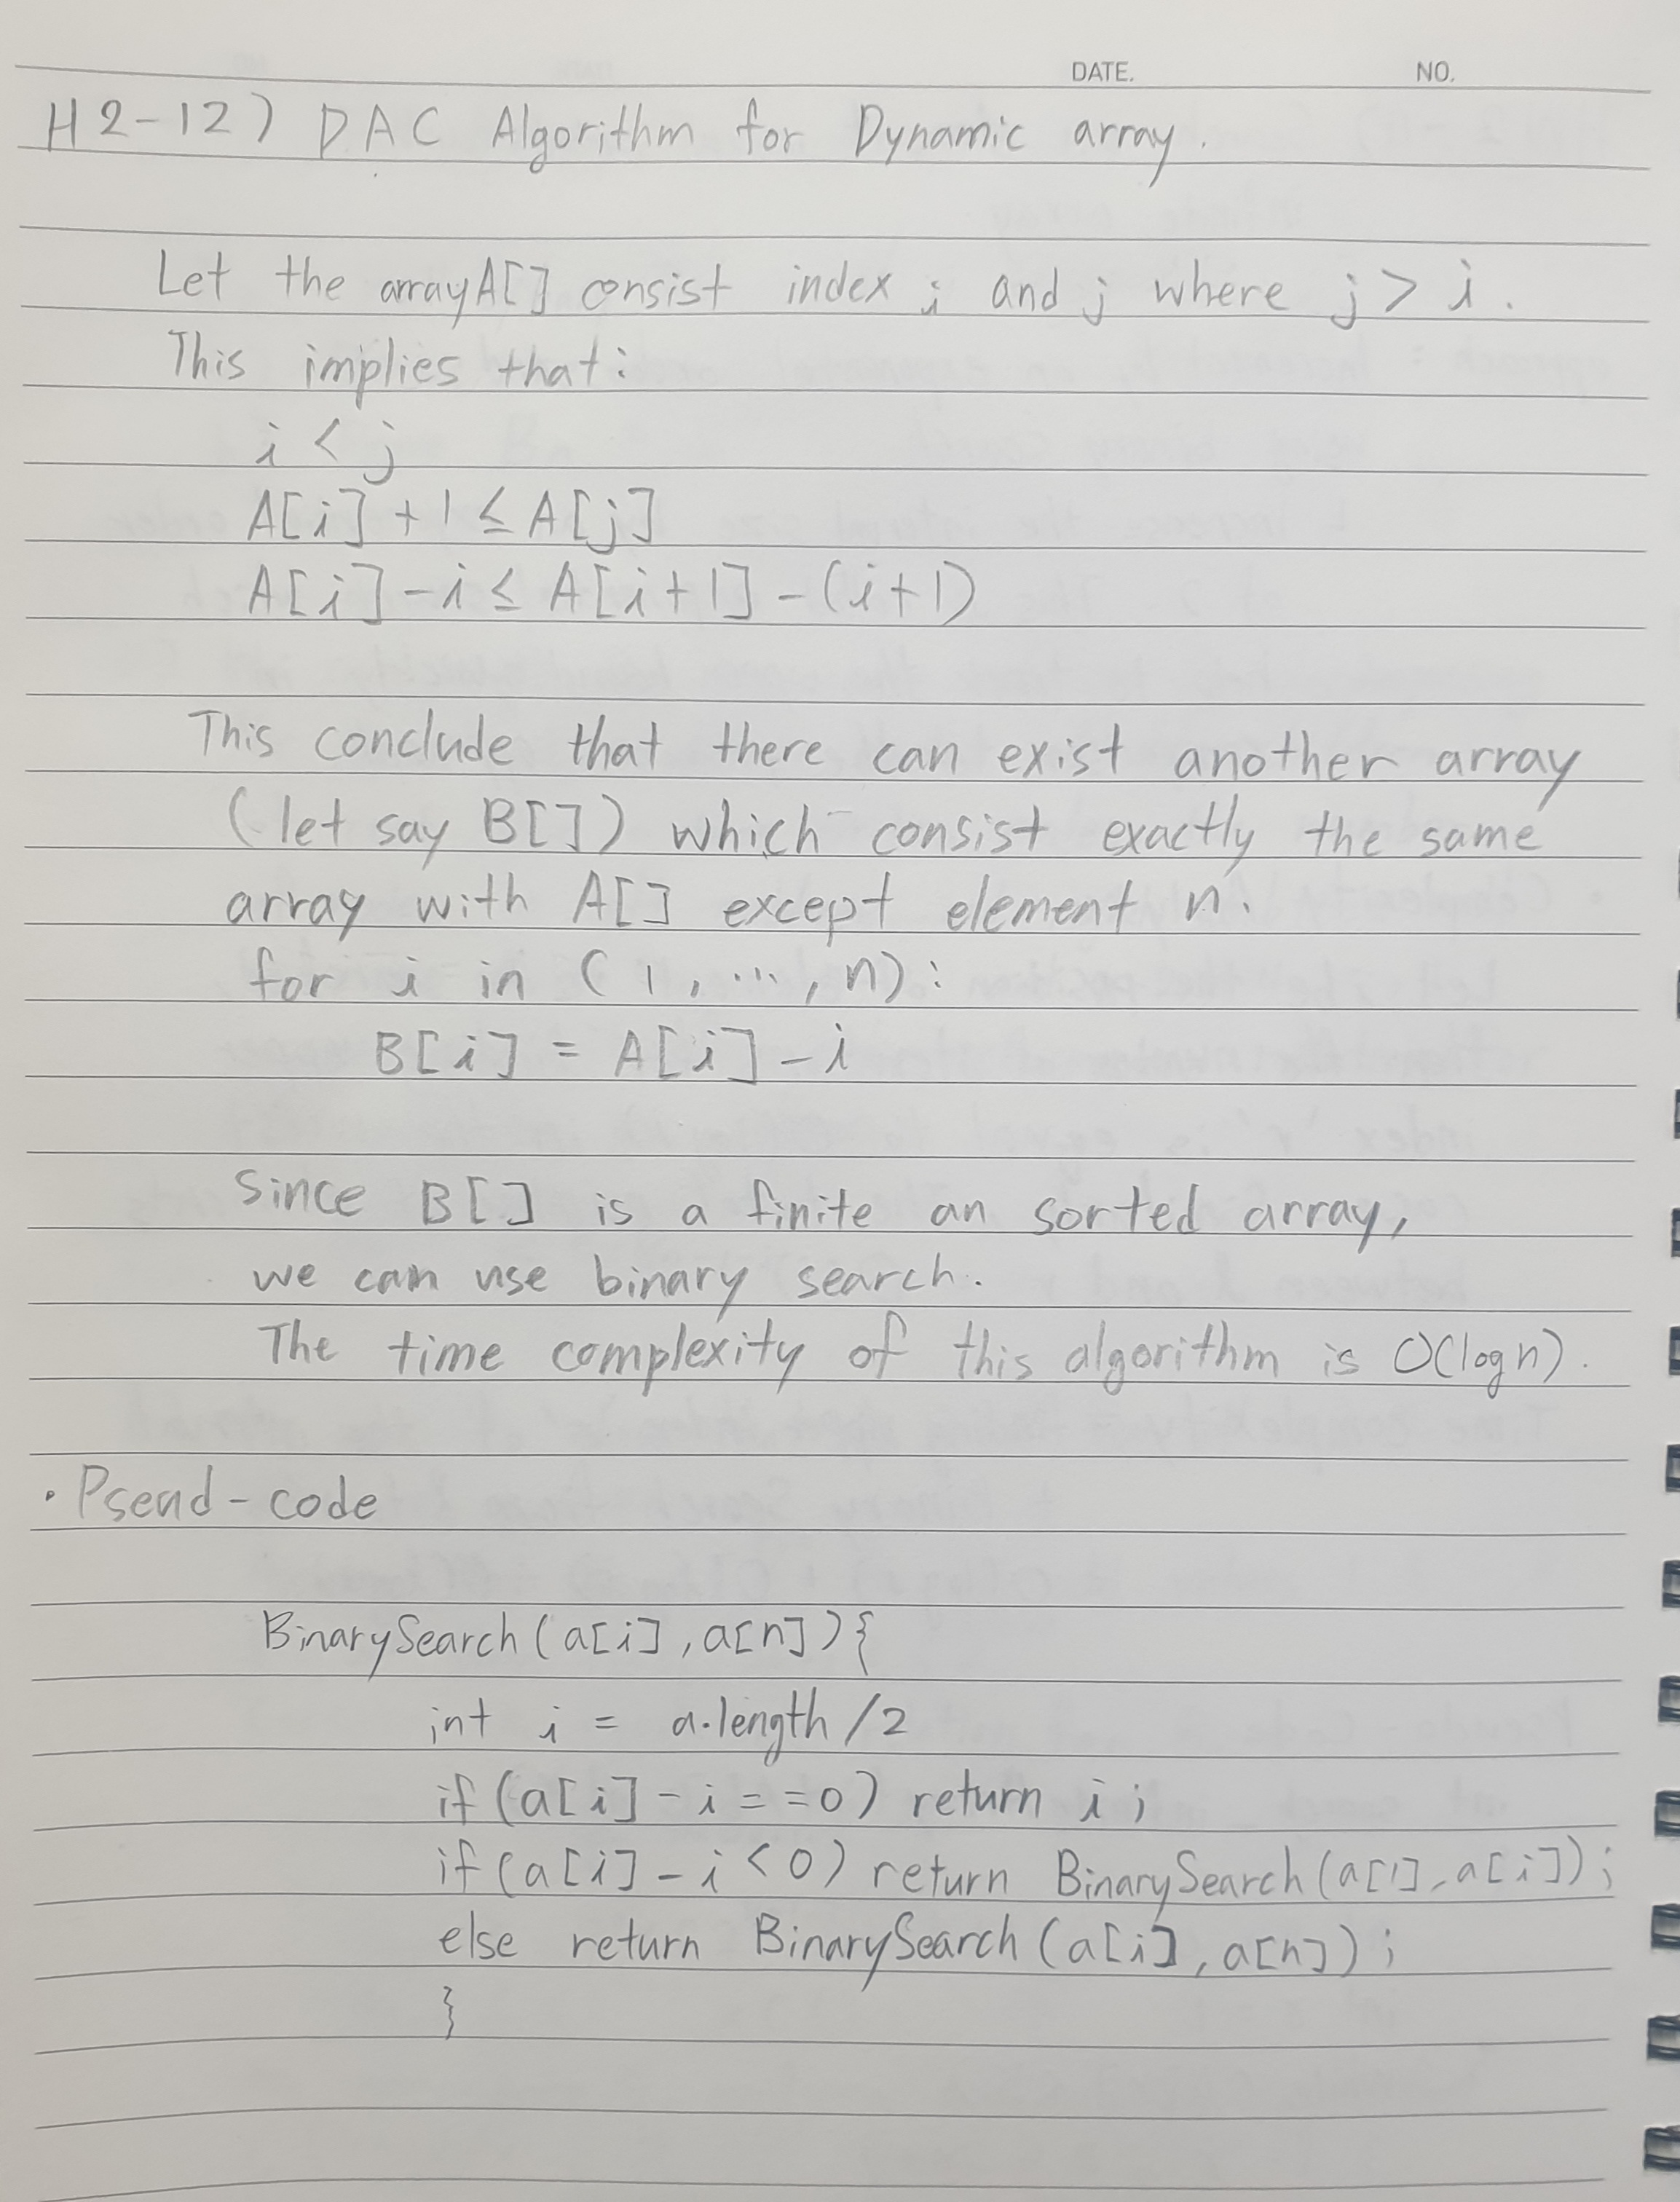 DATE. NO.
H2-12) DAC Algorithm for Dynamic array.
Let the array A[] consist index i and j where j > i.
This implies that:
i < j
A[i] + 1 ≤ A[j]
A[i] - i ≤ A[i+1] - (i+1)
This conclude that there can exist another array
(let say B[]) which consist exactly the same
array with A[] except element n.
for i in (1, ..., n):
B[i] = A[i] - i
since B[] is a finite an sorted array,
we can use binary search.
The time complexity of this algorithm is O(log n).
· Psead-code
BinarySearch(a[i], a[n]){
int i = a.length/2
if (a[i] - i == 0) return i;
if (a[i] - i < 0) return BinarySearch(a[1], a[i]);
else return BinarySearch(a[i], a[n]);
}